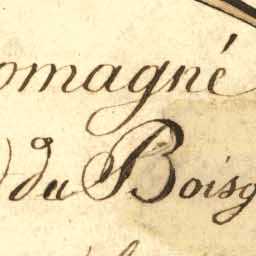 omagné
du Boisg